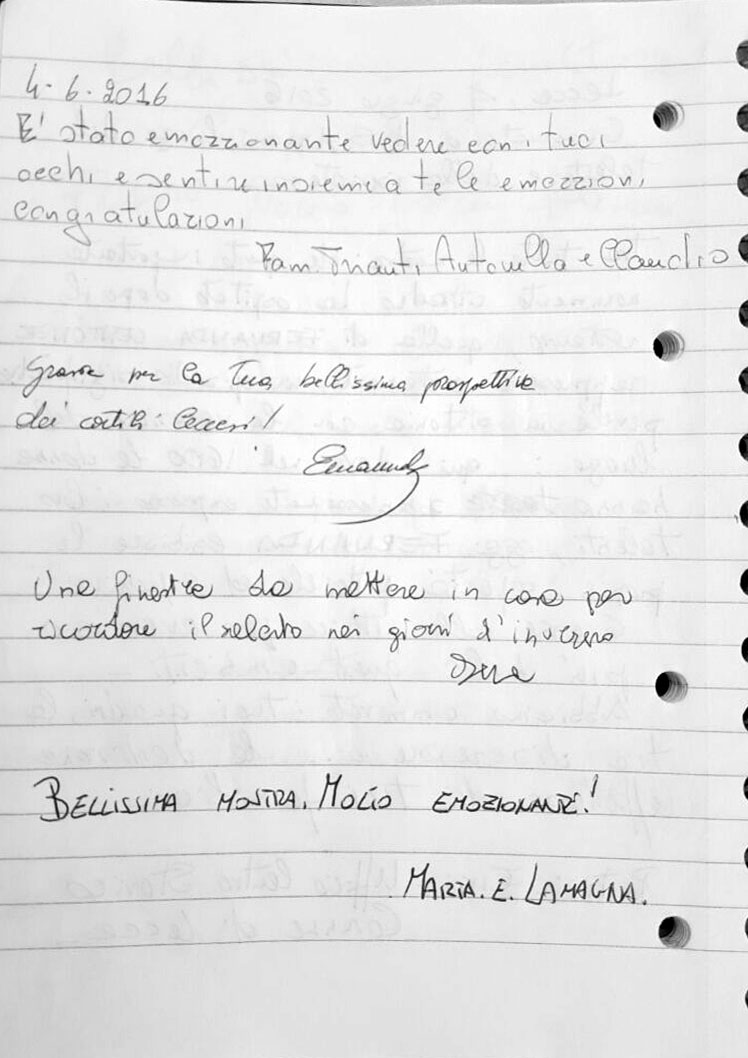 4.6.2016
E' stato emozzionante vedere con i tuoi
occhi e sentire insieme a te le emozzioni
congratulazioni
Fam Tnauti Antonella e Claudio
Grazie per la Tua bellissima prospettiva
dei cortili leccesi!
Emanuela
Una finestra da mettere in casa per
ricordare il salento nei giorni d'inverno
BELLISSIMA MOSTRA. MOLTO EMOZIONANTE!
MARIA. E. LAMAGNA.